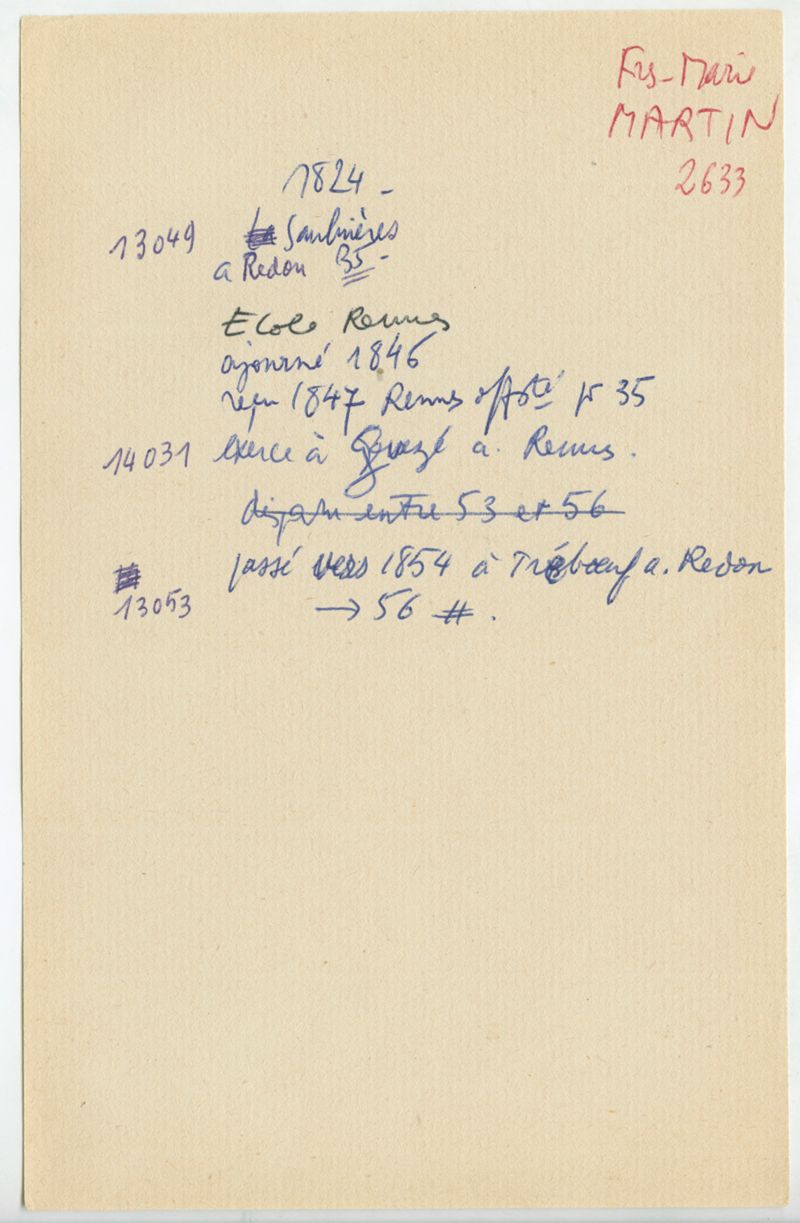 Frs-Marie
MARTIN
2633
1824 -
13049 Saulnières
a Redon 35 -
Ecole Rennes
ajourné 1846
reçu 1847 Rennes off pr 35
14031 exerce à Gévezé a. Rennes.
disparu entre 53 et 56
passé vers 1854 à Trébœuf a. Redon
13053 → 56 #.